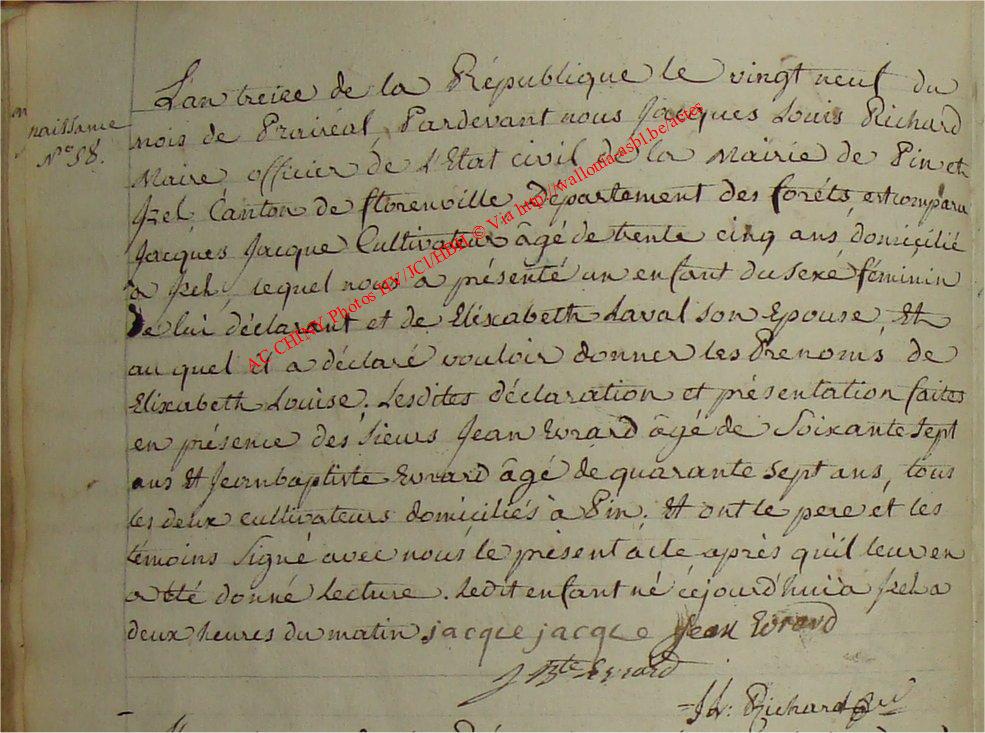 naissance
N.° 58.
L'an treize de la République le vingt neuf du
mois de Prairéal, Pardevant nous Jacques Louis Richard
Maire officier de L'Etat civil de la Mairie de Pin et
Izel Canton de florenville Département des forêts, est comparu
Jacques Jacque Cultivateur âgé de trente cinq ans domicilié
a Izel, lequel nous a présenté un enfant du sexe féminin
de lui déclarant et de Elixabeth Laval son Epouse, Et
auquel il a déclaré vouloir donner les Prenoms de
Elixabeth Louise. Lesdites déclaration et présentation faites
en présence des Sieurs Jean Evrard âgé de Soixante Sept
ans Et Jeanbaptiste Evrard âgé de quarante Sept ans, tous
les deux cultivateurs domiciliés à Pin. Et ont le pere et les
témoins Signé avec nous le présent acte après qu'il leur en
a été donné Lecture. Ledit enfant né céjourd'hui à Izel a
deux heures du matin jacque jacque Jean Evrard
J Bte Evrard
JL: Richard
AC CHINY Photos HV/JCl/HBM © Via http://wallonia-asbl.be/actes